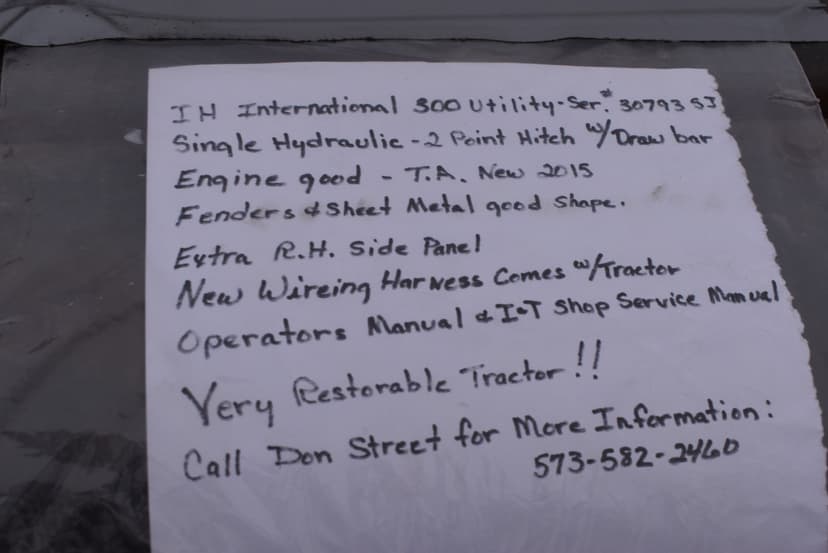 IH International 300 Utility-Ser.# 30793 SJ
Single Hydraulic - 2 Point Hitch w/Draw bar
Engine good - T.A. New 2015
Fenders & Sheet Metal good Shape.
Extra R.H. Side Panel
New Wireing Harness Comes w/Tractor
Operators Manual & I&T Shop Service Manual
Very Restorable Tractor!!
Call Don Street for More Information:
573-582-2460